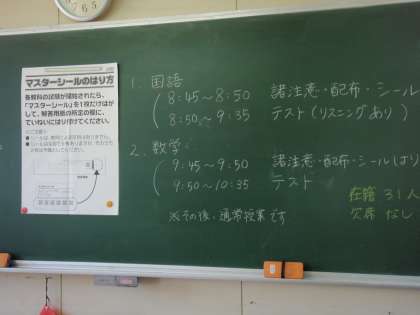 マスターシールのはり方
各教科の試験が開始されたら、
「マスターシール」を1枚だけはが
して、解答用紙の所定の欄に、
ていねいにはり付けてください。
1. 国語
8:45～8:50 諸注意・配布・シール
8:50～9:35 テスト(リスニングあり)
2. 数学
9:45～9:50 諸注意・配布・シールはり
9:50～10:35 テスト
※その後、通常授業です
在籍 31人
欠席 なし